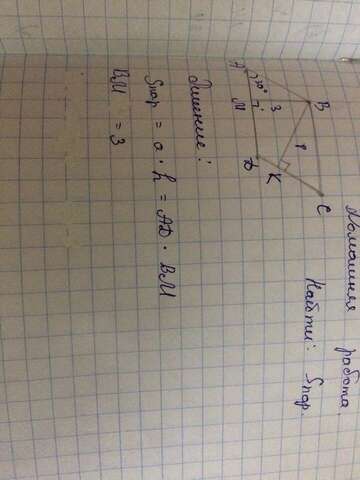 Домашняя работа.
Найти: Sпар.
B
C
A
30°
3
M
8
D
K
Решение:
Sпар = a · h = AD · BM
BM = 3